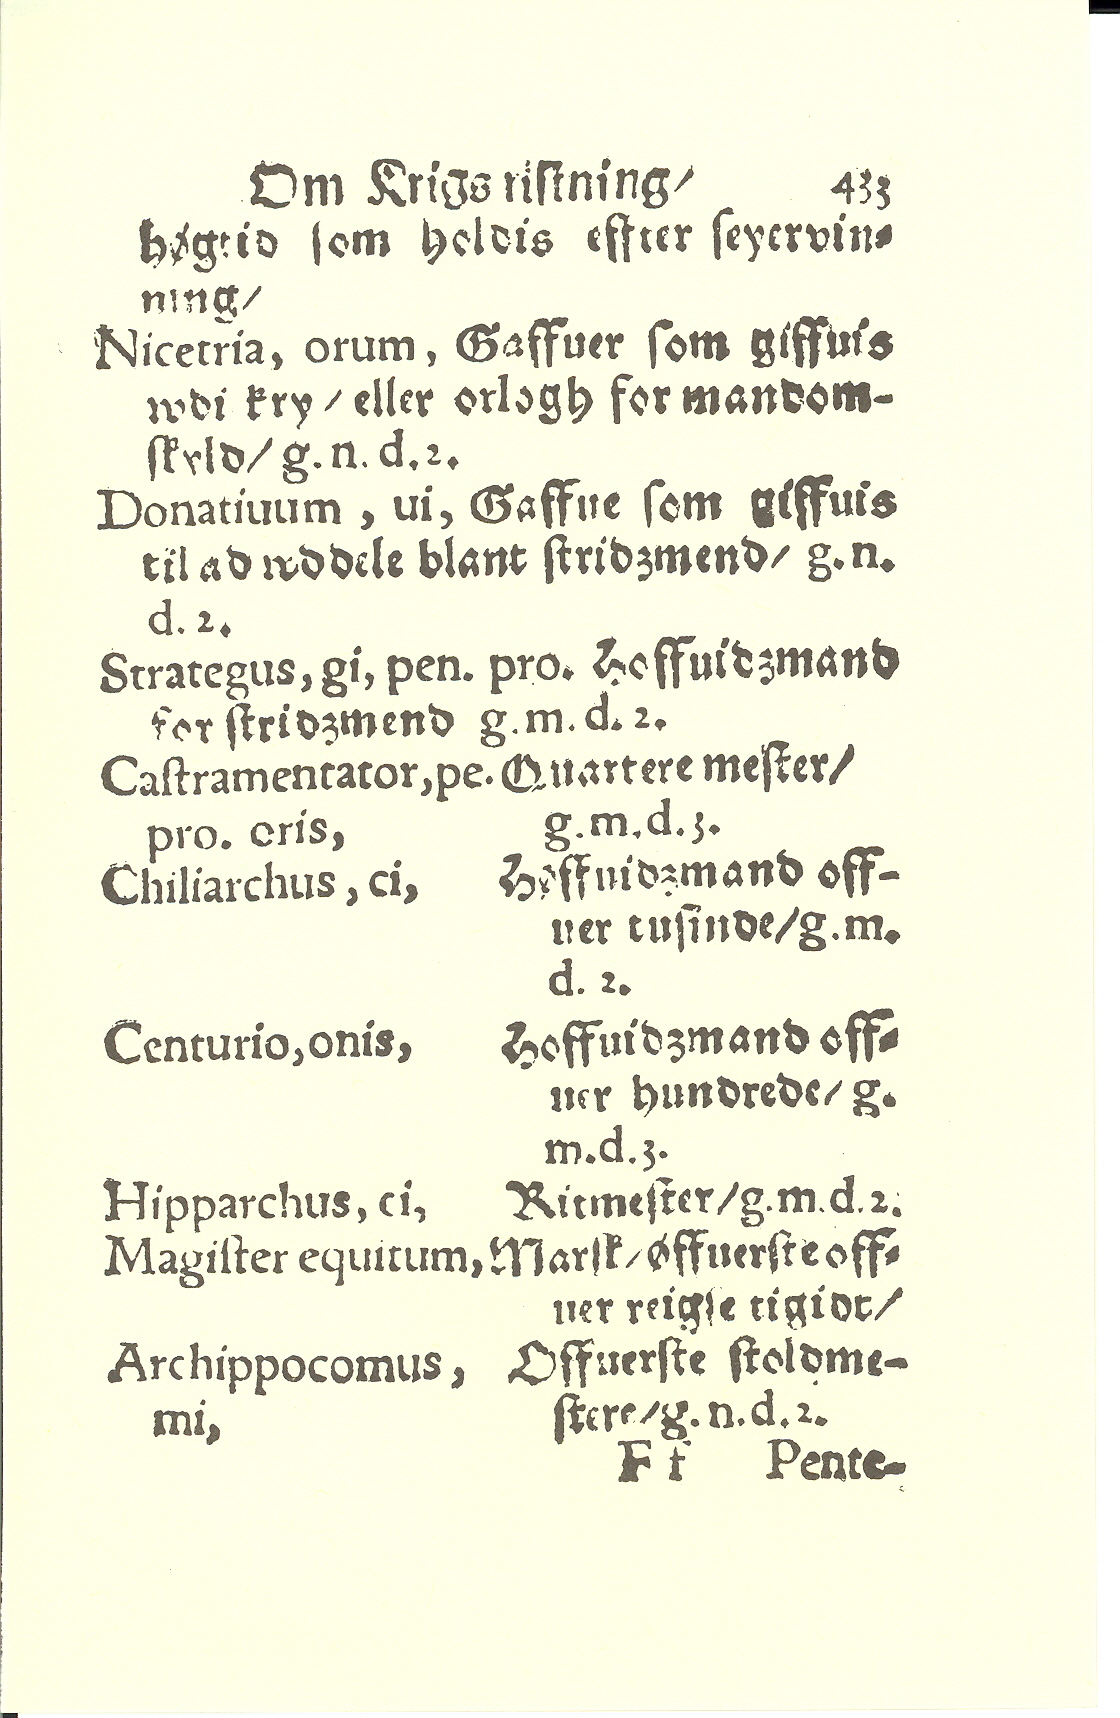 Om Krigs ristning/ 433
høgtid som holdis effter seyervin-
ning/
Nicetria, orum, Gaffuer som giffuis
wdi kry/ eller orlogh for mandom-
skyld/ g.n.d.2.
Donatiuum, ui, Gaffue som giffuis
til ad wddele blant stridzmend/ g.n.
d.2.
Strategus, gi, pen. pro. Høffuidzmand
for stridzmend g.m.d.2.
Castramentator, pe. Quartere mester/
pro. oris, g.m.d.3.
Chiliarchus, ci, Høffuidzmand off-
uer tusinde/ g.m.
d.2.
Centurio, onis, Høffuidzmand off-
uer hundrede/ g.
m.d.3.
Hipparchus, ci, Ritmester/ g.m.d.2.
Magister equitum, Marsk/ øffuerste off-
uer reigse tigidt/
Archippocomus, Offuerste stoldme-
mi, stere/ g.n.d.2.
Ff Pente-